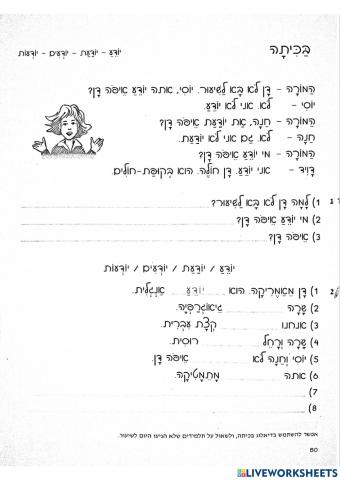 בַּכִּיתָה
יוֹדֵעַ - יוֹדַעַת - יוֹדְעִים - יוֹדְעוֹת
הַמּוֹרָה - דָן לֹא בָּא לַשִּׁיעוּר. יוֹסִי, אתה יוֹדֵעַ אֵיפֹה דָן?
יוֹסִי - לֹא. אֲנִי לֹא יוֹדֵעַ.
הַמּוֹרָה - חַנָה, אַת יוֹדַעַת אֵיפֹה דָן?
חַנָה - לֹא. גַם אֲנִי לֹא יוֹדַעַת.
הַמּוֹרָה - מִי יוֹדֵעַ אֵיפֹה דָן?
דָוִיד - אֲנִי יוֹדֵעַ. דָן חוֹלֶה. הוּא בְּקוּפַּת-חוֹלִים.
1 (1 לָמָה דָן לֹא בָּא לַשִּׁיעוּר?
(2 מִי יוֹדֵעַ אֵיפֹה דָן?
(3 אֵיפֹה דָן?
יוֹדֵעַ / יוֹדַעַת / יוֹדְעִים / יוֹדְעוֹת
2 (1 דָן מֵאָמֶרִיקָה. הוּא יוֹדֵעַ אַנְגְלִית.
(2 שָׂרָה גֵיאוֹגְרַפְיָה.
(3 אֲנַחְנוּ קְצָת עִבְרִית.
(4 שָׂרָה וְרָחֵל רוּסִית.
(5 יוֹסִי וְחַנָה לֹא אֵיפֹה דָן.
(6 אתה מָתֵמָטִיקָה.
(7
(8
אפשר להשתמש בדיאלוג בכיתה, ולשאול על תלמידים שלא הגיעו היום לשיעור.
80
LIVEWORKSHEETS